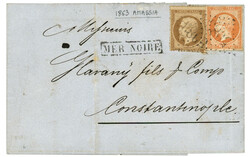 1863 AMASSIA
Messieurs
MER NOIRE
Havary fils & Comp
Constantinople